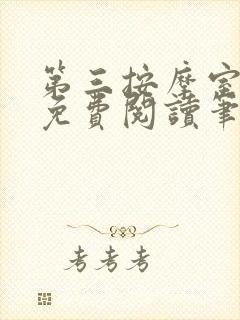 第三按摩室
免費閱讀筆
考考考